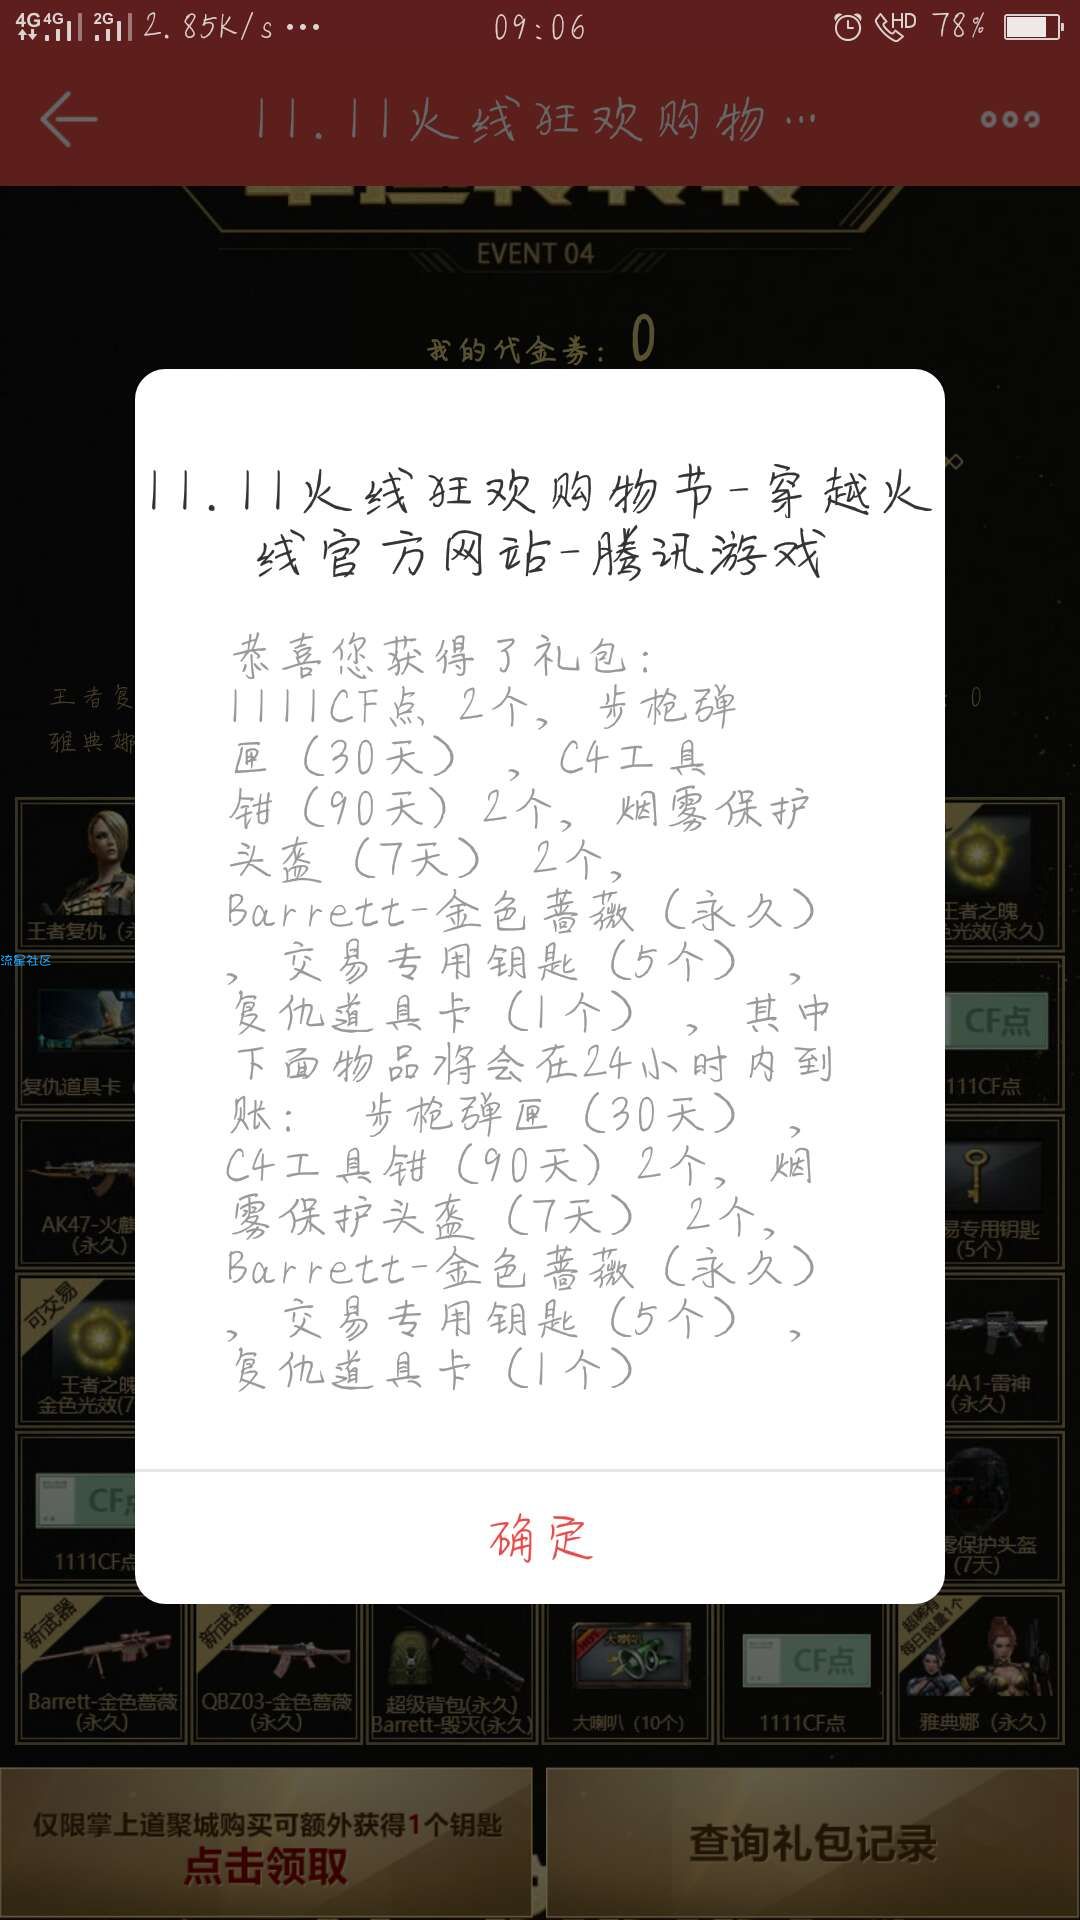 4G 4G 2G 2.85K/s ··· 09:06 HD 78%
11.11火线狂欢购物…
EVENT 04
我的代金券：0
11.11火线狂欢购物节-穿越火
线官方网站-腾讯游戏
恭喜您获得了礼包：
1111CF点 2个， 步枪弹
匣（30天） ，C4工具
钳（90天）2个， 烟雾保护
头盔（7天） 2个，
Barrett-金色蔷薇（永久）
， 交易专用钥匙（5个） ，
复仇道具卡（1个） ，其中
下面物品将会在24小时内到
账： 步枪弹匣（30天） ，
C4工具钳（90天）2个， 烟
雾保护头盔（7天） 2个，
Barrett-金色蔷薇（永久）
， 交易专用钥匙（5个） ，
复仇道具卡（1个）
确定
王者复
: 0
雅典娜
王者复仇（永
王者之魄
色光效(永久)
流星社区
复仇道具卡（
CF点
111CF点
AK47-火麒
（永久）
易专用钥匙
(5个)
可交易
王者之魄
金色光效(7
4A1-雷神
（永久）
CF点
1111CF点
雾保护头盔
(7天)
新武器
Barrett-金色蔷薇
（永久）
新武器
QBZ03-金色蔷薇
（永久）
超级背包(永久)
Barrett-毁灭(永久)
大喇叭
大喇叭（10个）
CF点
1111CF点
超稀有
每日限量1个
雅典娜（永久）
仅限掌上道聚城购买可额外获得1个钥匙
点击领取
查询礼包记录